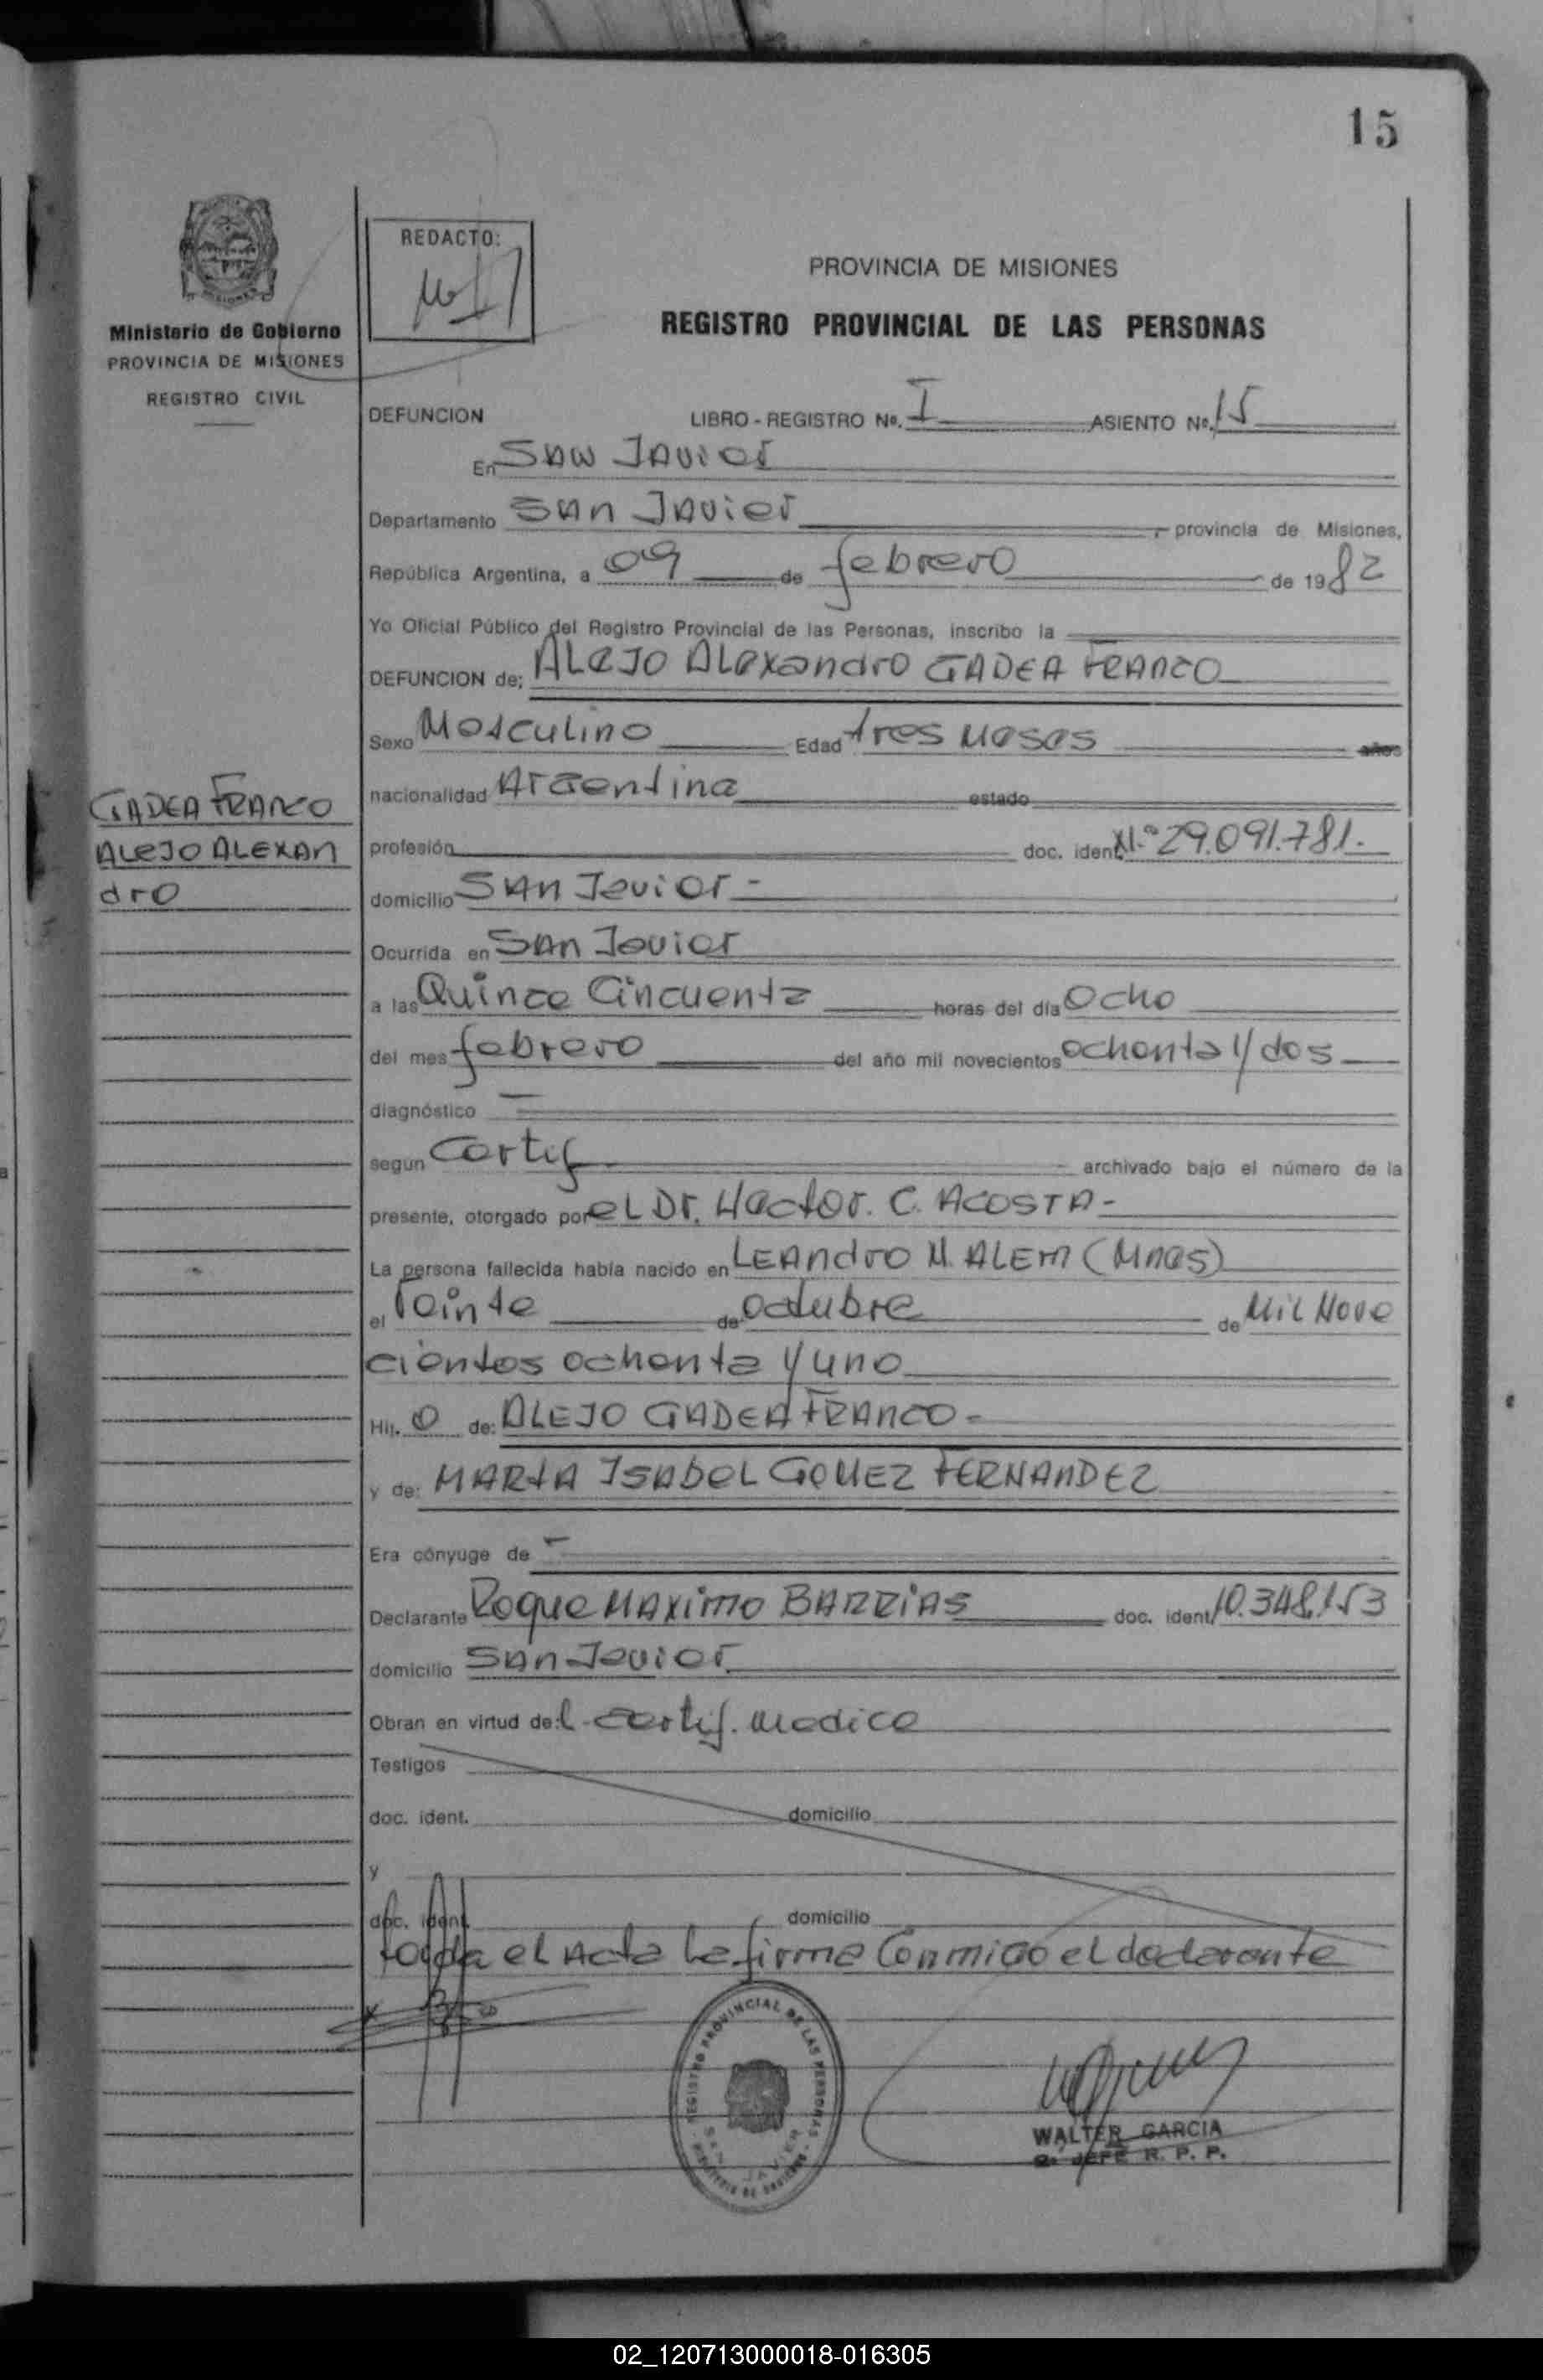 15
REDACTO:
PROVINCIA DE MISIONES
REGISTRO PROVINCIAL DE LAS PERSONAS
Ministerio de Gobierno
PROVINCIA DE MISIONES
REGISTRO CIVIL
DEFUNCION LIBRO - REGISTRO No. I ASIENTO No. 15
En SAN JAVIER
Departamento SAN JAVIER provincia de Misiones,
República Argentina, a 09 de febrero de 1982
Yo Oficial Público del Registro Provincial de las Personas, inscribo la
DEFUNCION de: ALEJO ALEXandro GADEA FRANCO
Sexo Masculino Edad tres meses años
nacionalidad Argentina estado
GADEA FRANCO
ALEJO ALEXAN
dro
profesión doc. ident. N° 29.091.781.
domicilio SAN Javier -
Ocurrida en SAN Javier
a las Quince Cincuenta horas del día Ocho
del mes febrero del año mil novecientos ochenta y dos
diagnóstico -
según Certif archivado bajo el número de la
presente, otorgado por el Dr. Hector. C. ACOSTA -
La persona fallecida había nacido en LEAndro N. ALEM (Mnes)
el Veinte de octubre de Mil Nove
cientos ochenta y uno
Hij. o de: ALEJO GADEA FRANCO -
y de: MARIA ISABEL GOMEZ FERNANDEZ
Era cónyuge de -
Declarante Roque MAXimo BARRiAS doc. ident. 10.348.153
domicilio SAN Javier
Obran en virtud de: l - certif. medico
Testigos
doc. ident. domicilio
y
doc. ident. domicilio
Leida el Acta la firma Conmigo el declarante
REGISTRO PROVINCIAL DE LAS PERSONAS
SAN JAVIER
WALTER GARCIA
JEFE R. P. P.
02_120713000018-016305